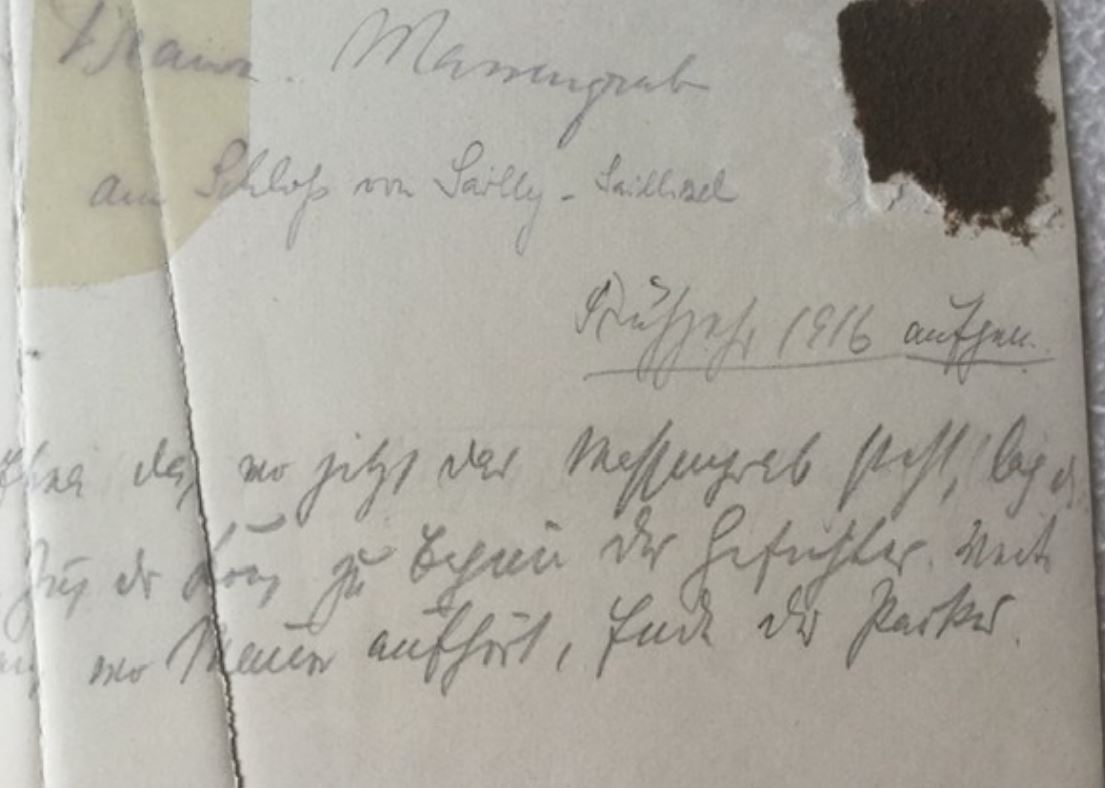 Massengrab
am Schloß von Sailly-Saillisel
Frühjahr 1916 aufgen.
da, wo jetzt das Massengrab steht, lag
der zu Beginn des Gefechtes. Weit
wo Mauer aufhört, Ende des Parkes.